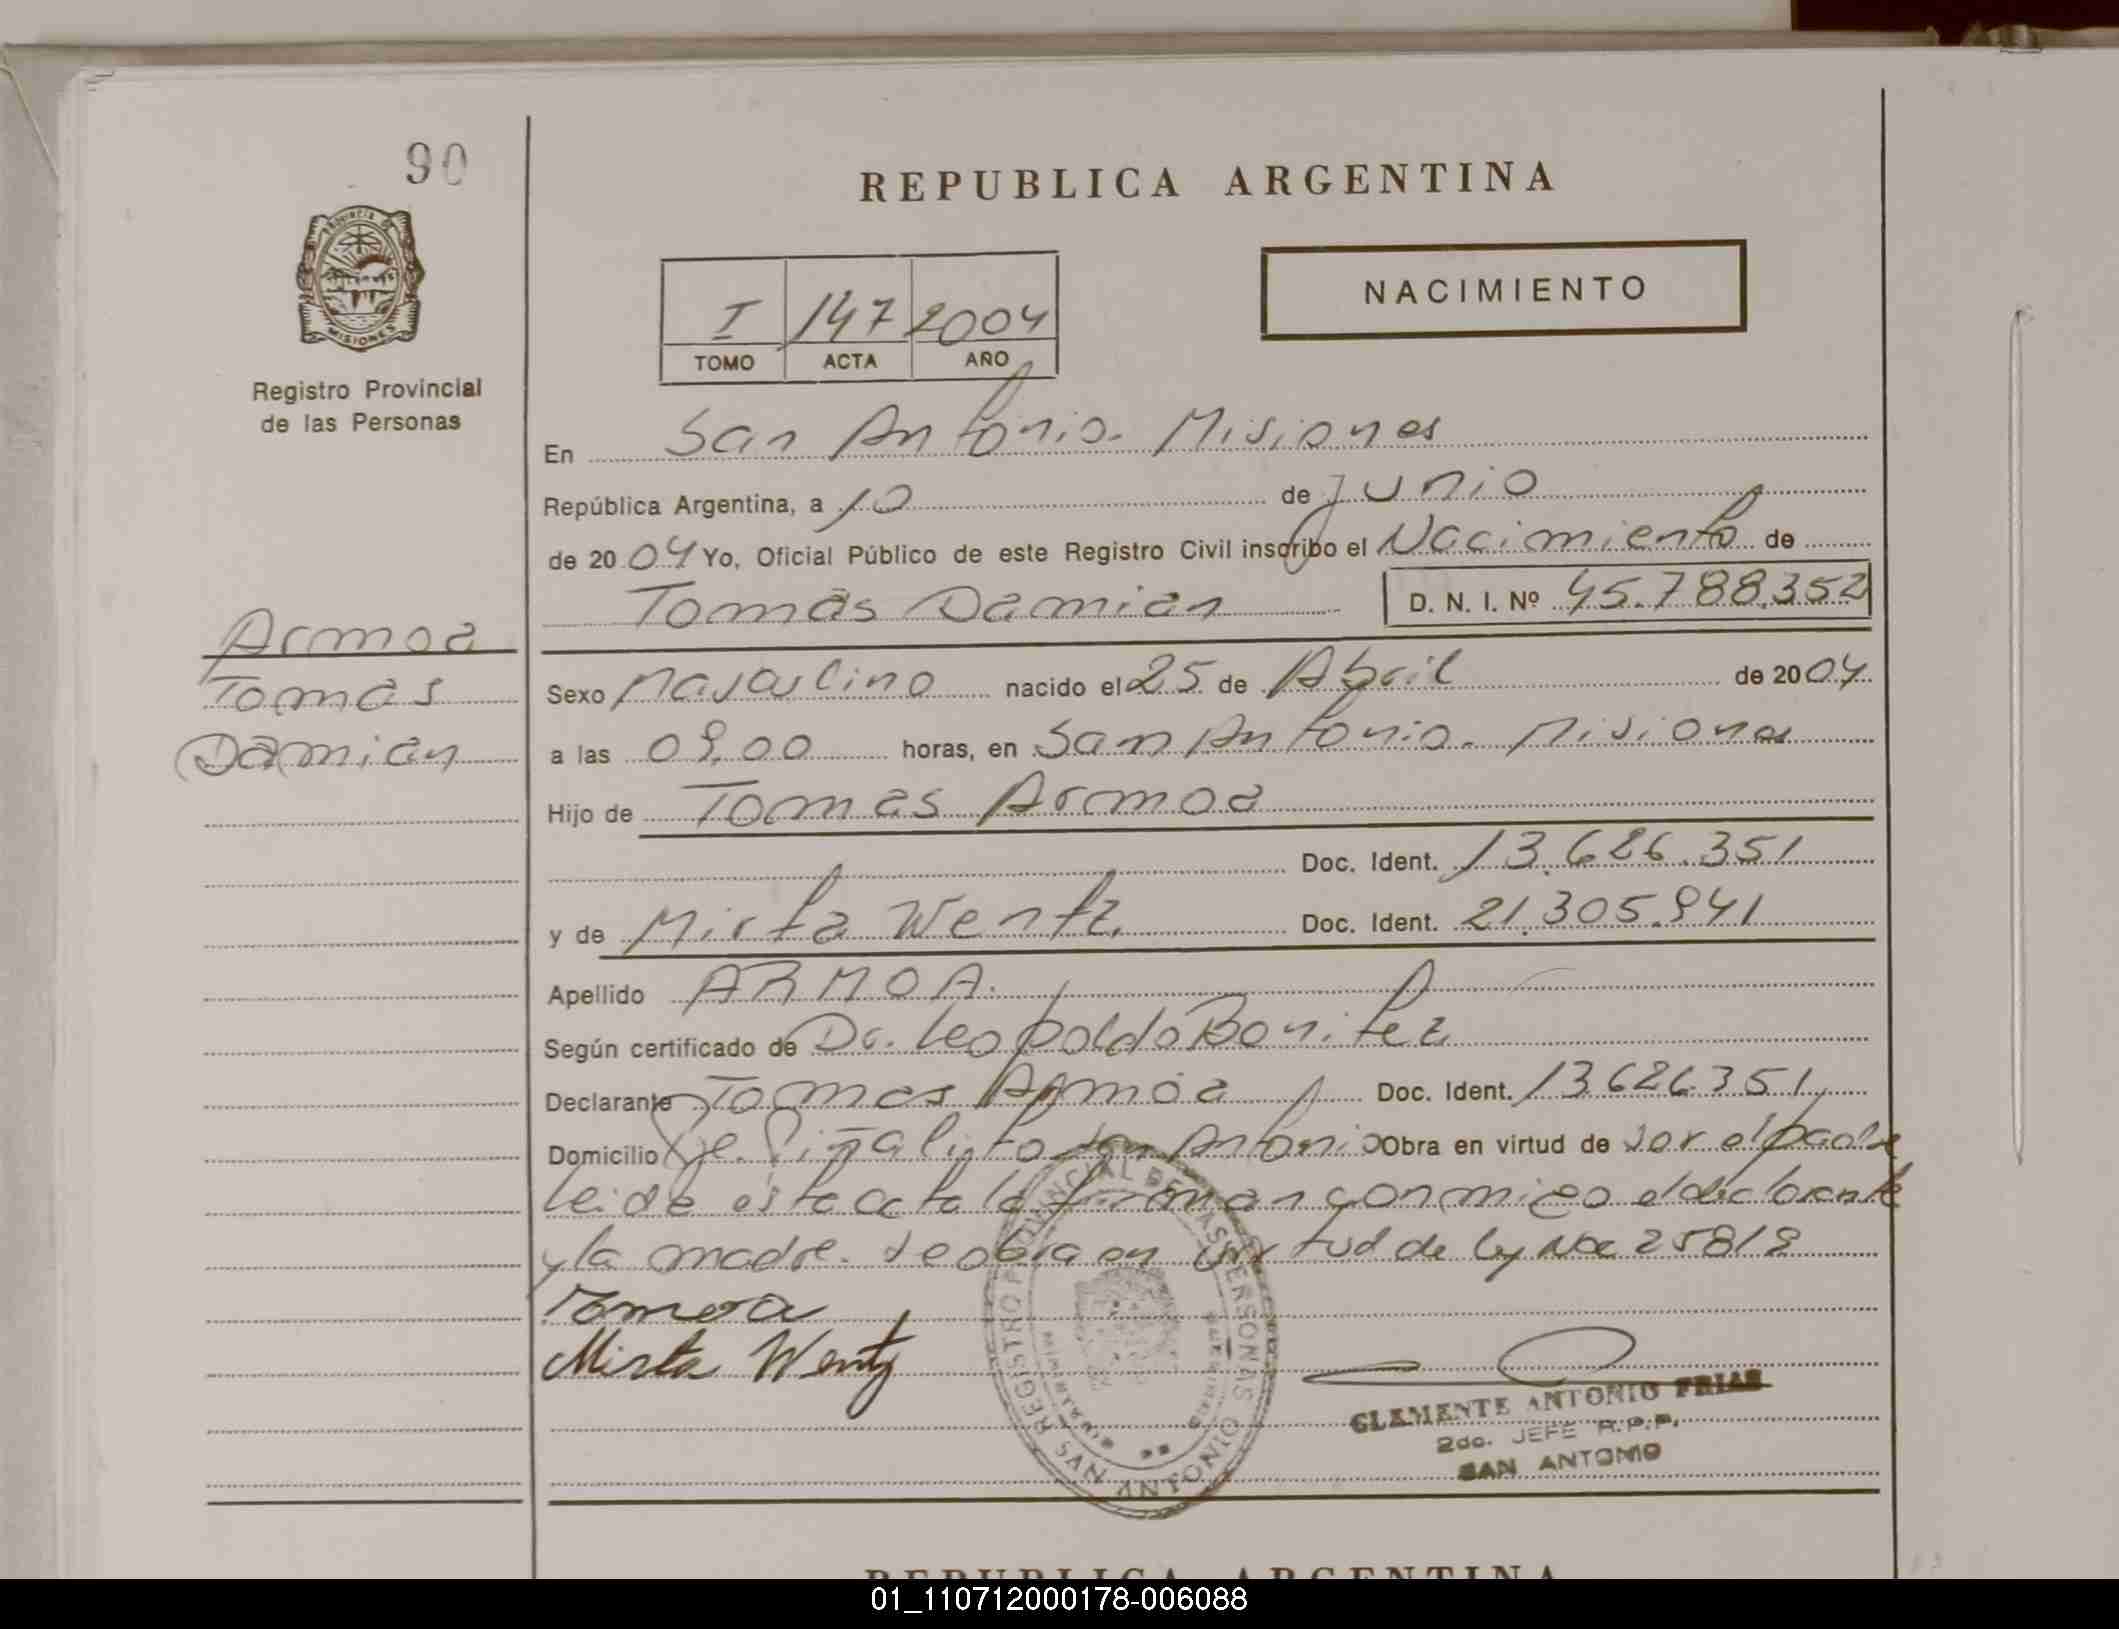 90
Provincia de
MISIONES
Registro Provincial
de las Personas
REPUBLICA ARGENTINA
I 147 2004
TOMO ACTA AÑO
NACIMIENTO
En San Antonio. Misiones
República Argentina, a 10 de Junio
de 2004 Yo, Oficial Público de este Registro Civil inscribo el Nacimiento de
Tomás Damian D. N. I. Nº 45.788.352
Armoa
Tomás
Damian
Sexo Masculino nacido el 25 de Abril de 2004
a las 09,00 horas, en San Antonio. Misiones
Hijo de Tomas Armoa
Doc. Ident. 13.626.351
y de Mirta Wentz. Doc. Ident. 21.305.941
Apellido ARMOA.
Según certificado de Dr. Leopoldo Benitez
Declarante Tomas Armoa Doc. Ident. 13626351
Domicilio Piñalito San Antonio Obra en virtud de ser el padre
leida esta acta la firman conmigo el declarante
y la madre. se obra en virtud de ley Nº 25819
Armoa
Mirta Wentz
REGISTRO PROVINCIAL DE LAS PERSONAS
SAN ANTONIO
MISIONES
CLEMENTE ANTONIO FRIAS
2do. JEFE R.P.P.
SAN ANTONIO
REPUBLICA ARGENTINA
01_110712000178-006088